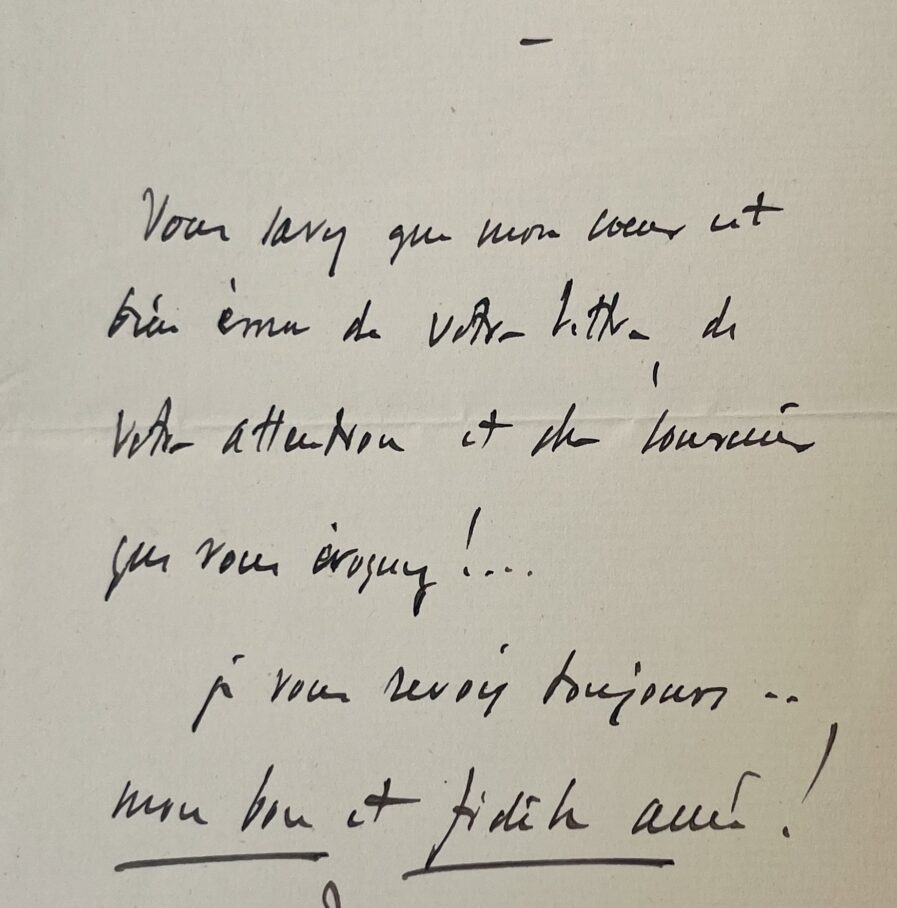 Vous savez que mon cœur est
bien ému de votre lettre, de
votre attention et des souvenirs
que vous évoquez !....
je vous revois toujours ..
mon bon et fidèle ami !